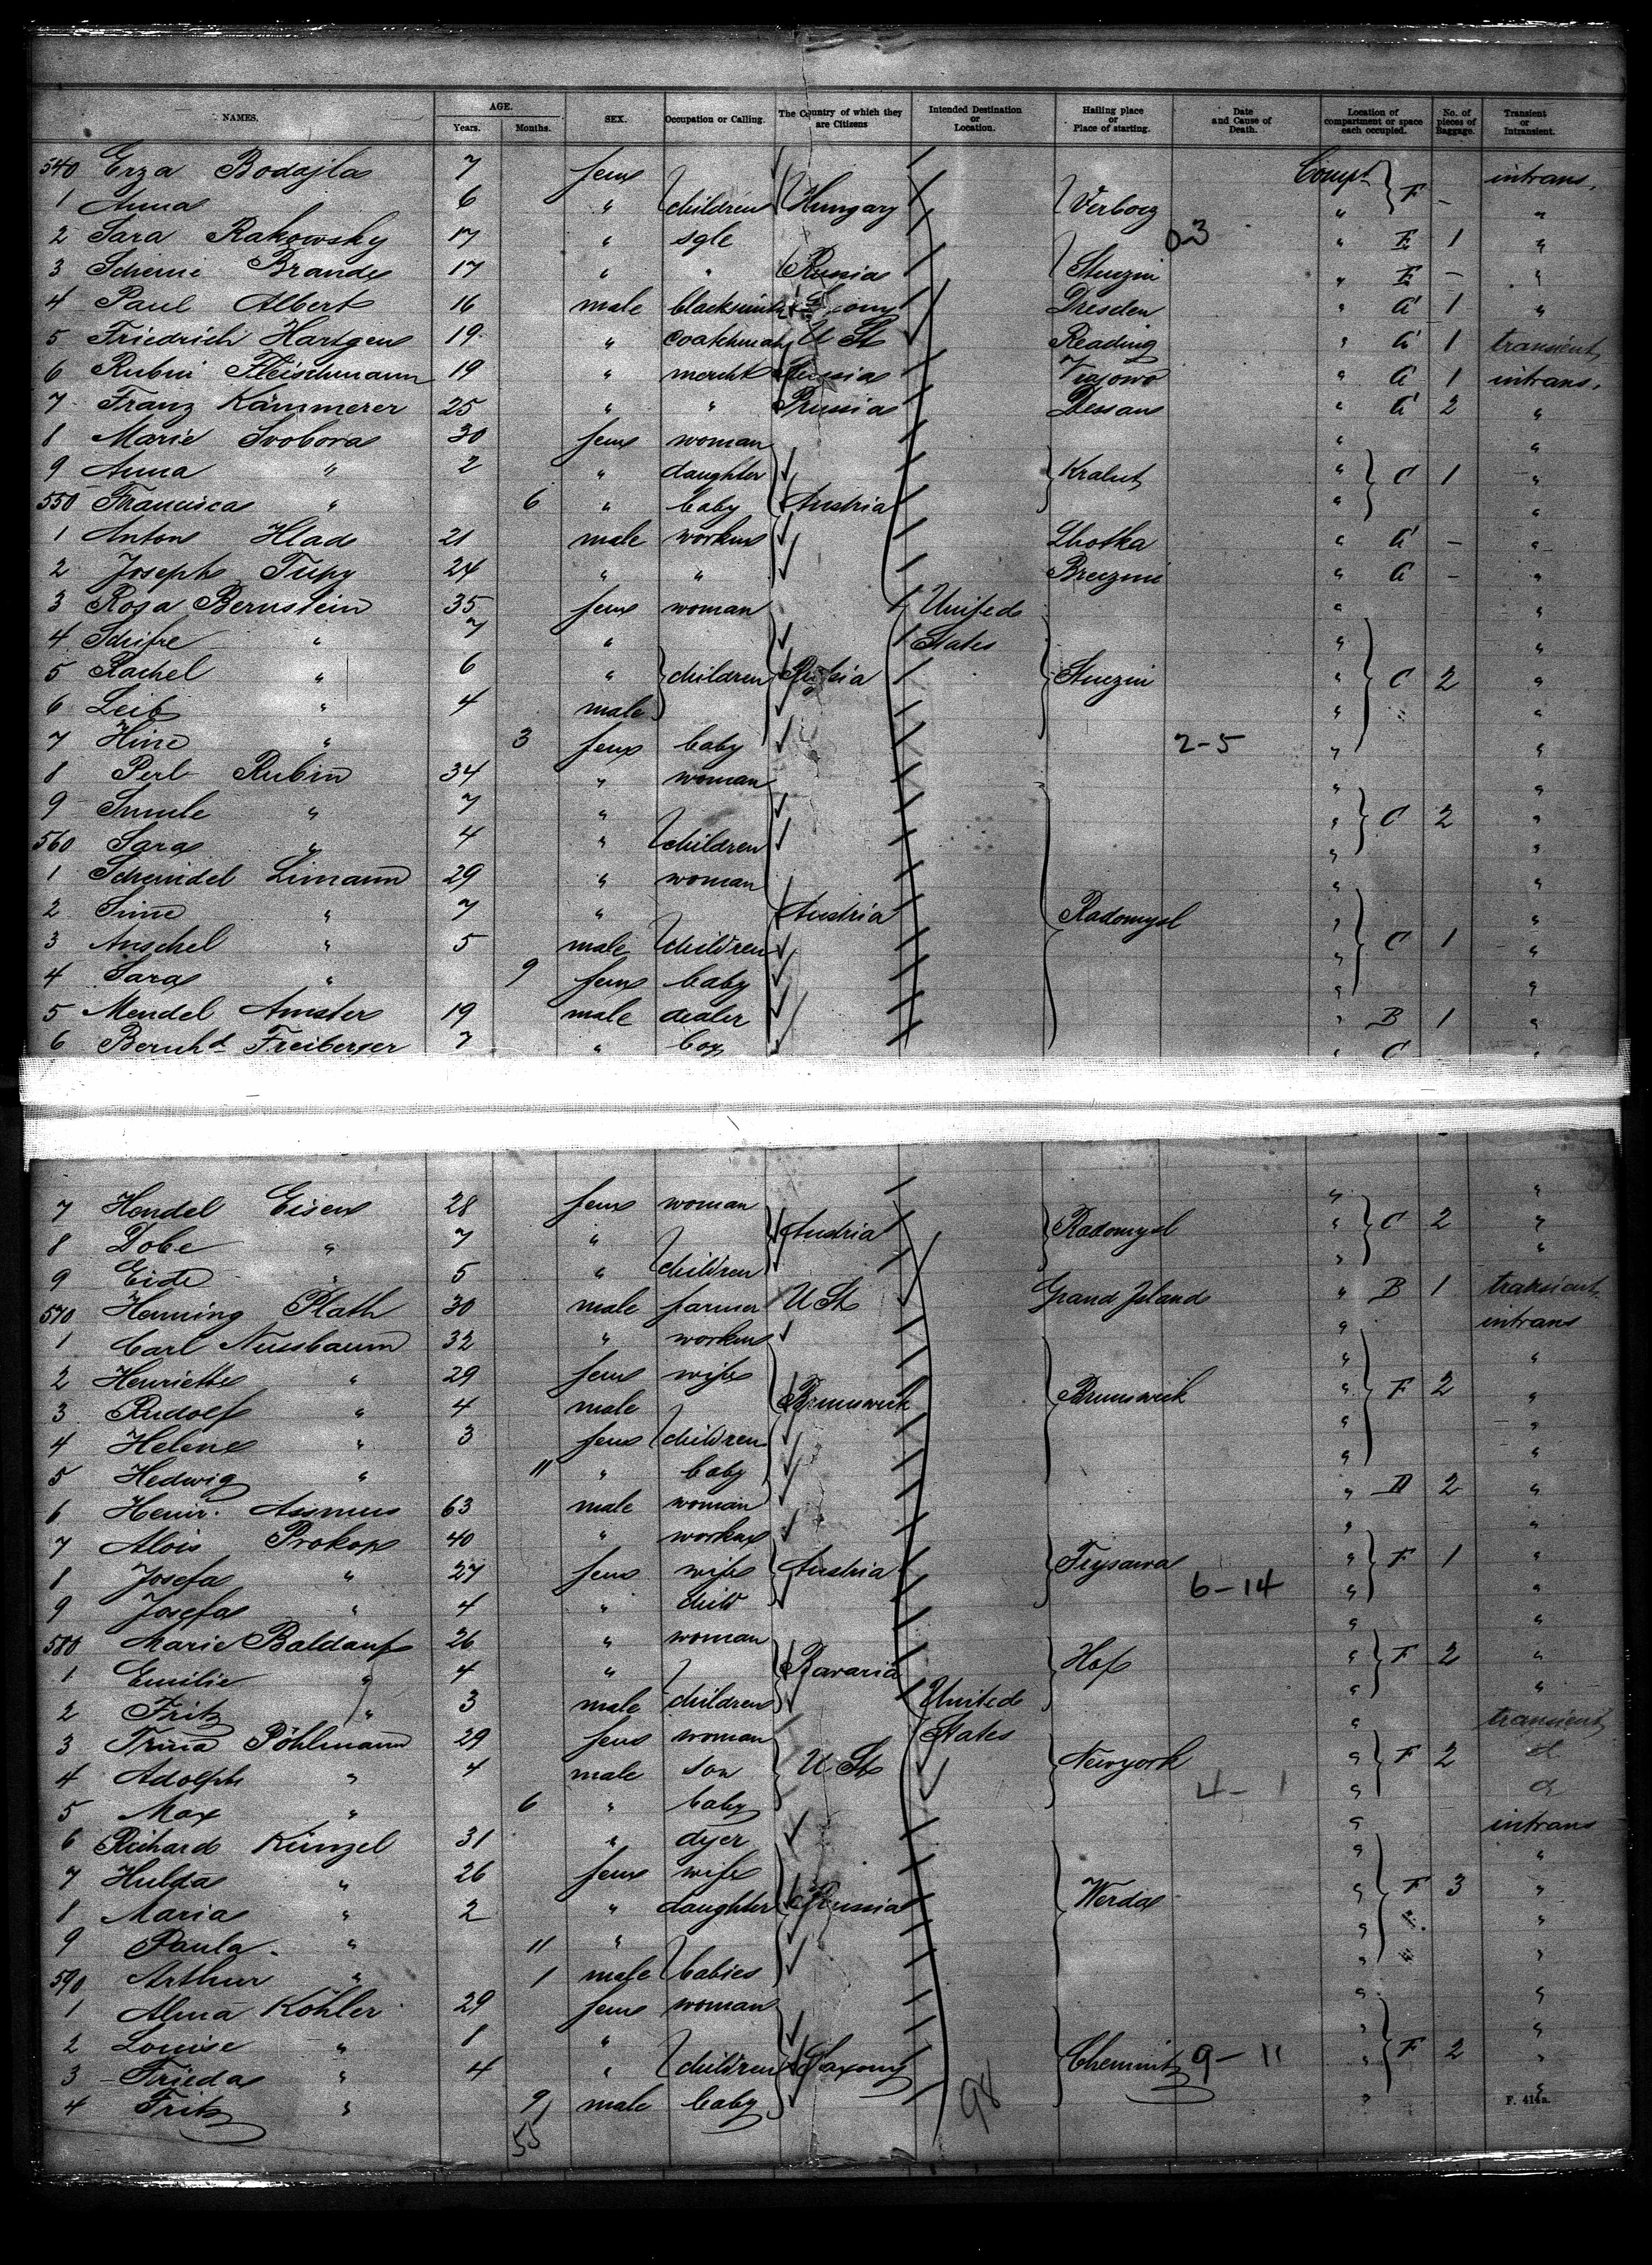 NAMES. AGE. Years. Months. SEX. Occupation or Calling. The Country of which they are Citizens Intended Destination or Location. Hailing place or Place of starting. Date and Cause of Death. Location of compartment or space each occupied. No. of pieces of Baggage. Transient or Intransient.
540 Erza Bodajla 7 fem Compt intrans.
1 Anna 6 " children Hungary Verbocz " F - "
2 Sara Rakowsky 17 " sgle 0-3 " E 1 "
3 Scheine Brande 17 " " Russia Stuczin " E - "
4 Paul Albert 16 male blacksmith Dresden " A 1 "
5 Friedrich Hartgen 19 " coatchman U St Reading " A 1 transient
6 Rubin Fleischmann 19 " mercht Russia " A 1 intrans.
7 Franz Kämmerer 25 " " Prussia Dessau " A 2 "
8 Marie Svobora 30 fem woman " "
9 Anna " 2 " daughter Kralut " C 1 "
550 Francisca " 6 " baby Austria " "
1 Anton Hlad 21 male workm Lhotka " A - "
2 Joseph Tupy 24 " " Brezini " A - "
3 Rosa Bernstein 35 fem woman United " "
4 Schifre " 7 " States " "
5 Rachel " 6 " children Russia Stuczin " C 2 "
6 Leib " 4 male " "
7 Hine " 3 fem baby 2-5 " "
8 Perl Rubin 34 " woman " "
9 Smule " 7 " " C 2 "
560 Sara " 4 " children " "
1 Scheindel Limann 29 " woman " "
2 Sime " 7 " Austria Radomysl " "
3 Anschel " 5 male children " C 1 "
4 Sara " 9 fem baby " "
5 Mendel Amster 19 male dealer " B 1 "
6 Bernhd Freiberger 7 " boy " C "
7 Hendel Eisen 28 fem woman " "
8 Dobe " 7 " Austria Radomysl " C 2 "
9 Eide " 5 " children " "
570 Henning Plath 30 male farmer U St Grand Island " B 1 transient
1 Carl Nussbaum 32 " workm " intrans
2 Henriette " 29 fem wife " "
3 Rudolf " 4 male Brunswick Brunswick " F 2 "
4 Helene " 3 fem children " "
5 Hedwig " 11 " baby " "
6 Heinr. Assmus 63 male woman " D 2 "
7 Alois Prokop 40 " workm " "
8 Josefa " 27 fem wife Austria Trysawa " F 1 "
9 Josefa " 4 " child 6-14 " "
580 Marie Baldauf 26 " woman " "
1 Emilie " 4 " Bavaria Hof " F 2 "
2 Fritz " 3 male children United " "
3 Trina Pöhlmann 29 fem woman States " transient
4 Adolph " 4 male son U St Newyork " F 2 d
5 Max " 6 " baby 4-1 " d
6 Richard Künzel 31 " dyer " intrans
7 Hulda " 26 fem wife " "
8 Maria " 2 " daughter Russia Werda " F 3 "
9 Paula " 11 " " "
590 Arthur " 1 male babies " "
1 Alma Köhler 29 fem woman " "
2 Louise " 8 " " "
3 Frieda " 4 " children Saxony Chemnitz 9-11 " F 2 "
4 Fritz " 9 male baby " "
55 98 F. 414a.